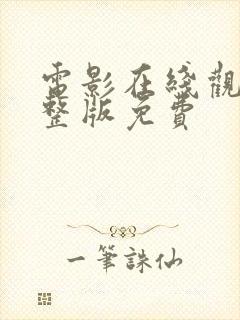 電影在綫觀
整版免費
一筆誅仙